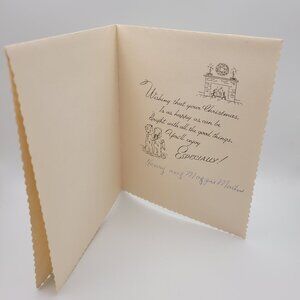 Wishing that your Christmas
Is as happy as can be
Bright with all the good things
You'll enjoy
ESPECIALLY!
and Maggie